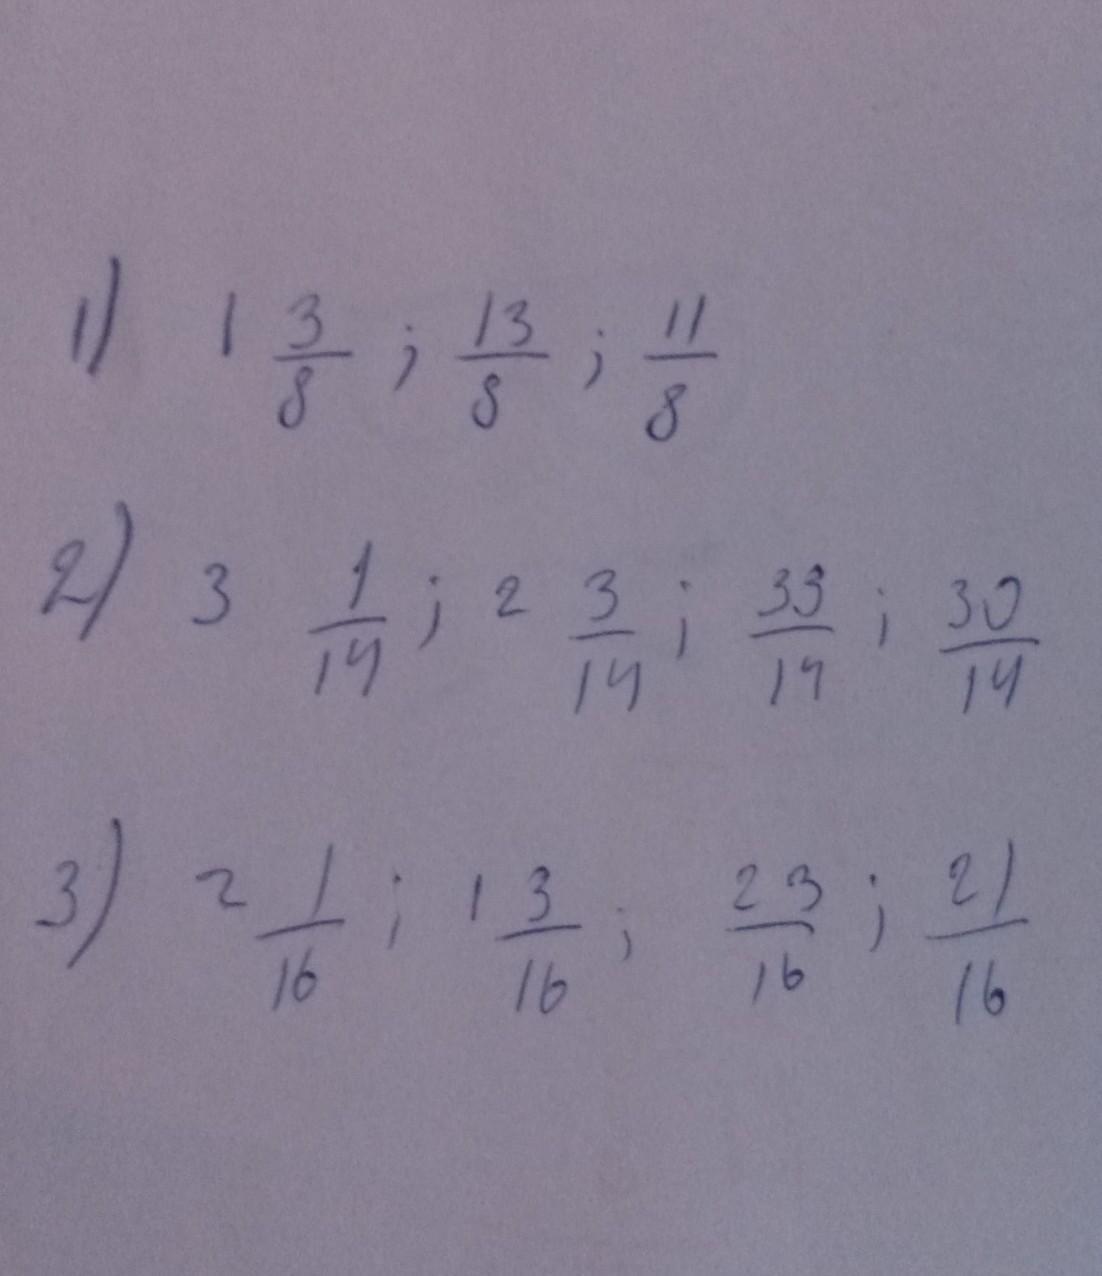 1) 1 3/8 ; 13/8 ; 11/8
2) 3 1/14 ; 2 3/14 ; 33/14 ; 30/14
3) 2 1/16 ; 1 3/16 ; 23/16 ; 21/16